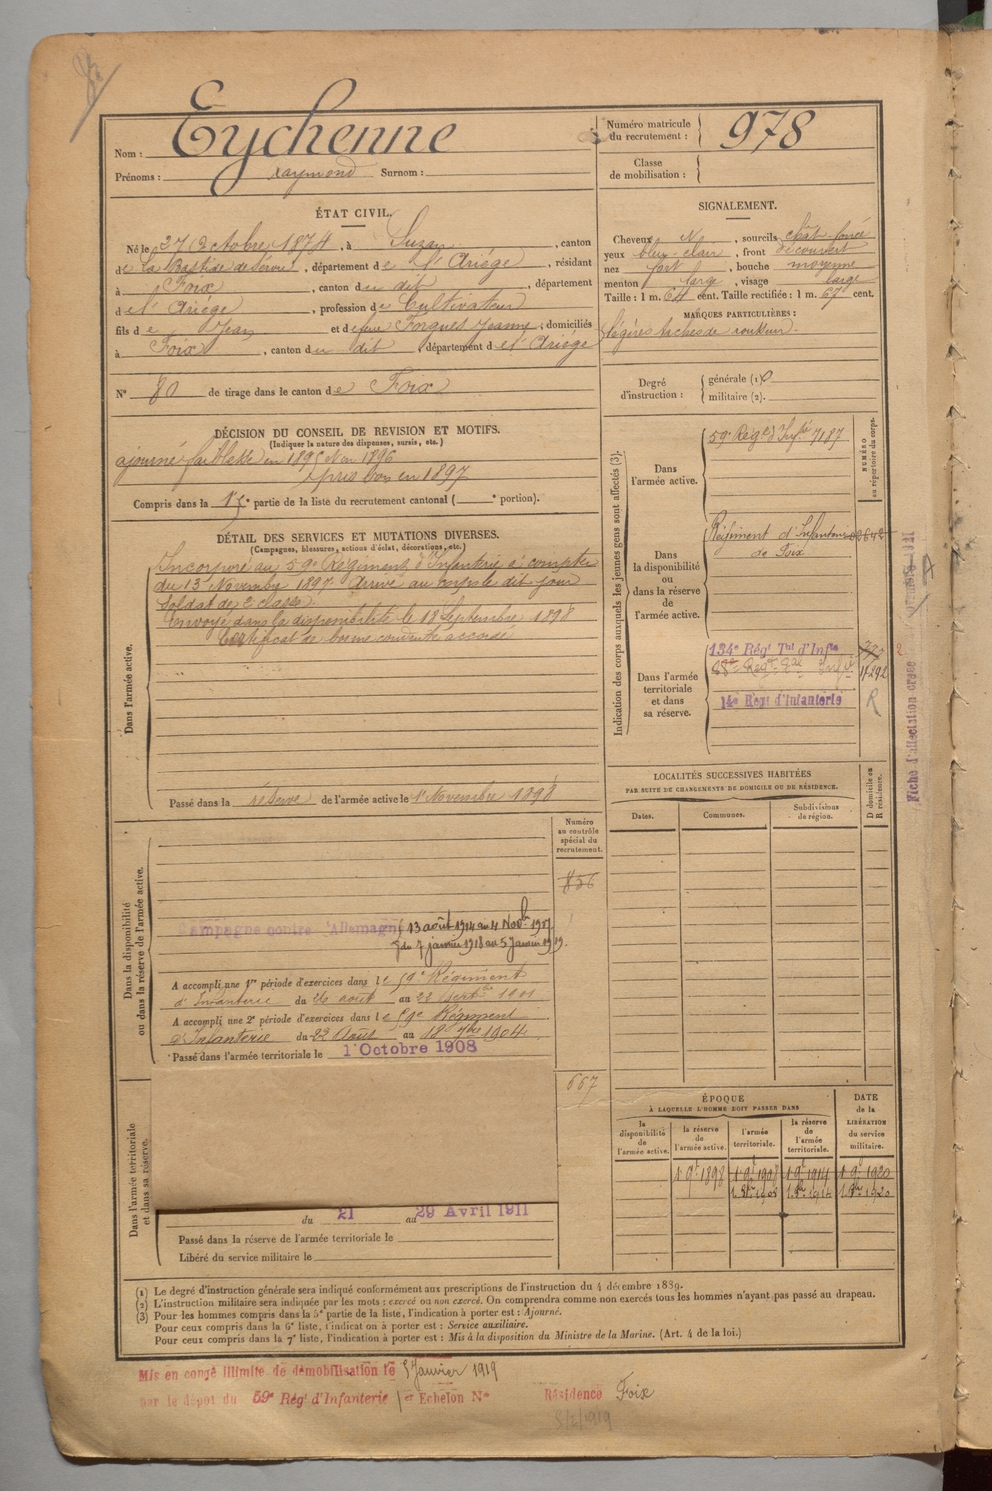 Eychenne
Nom :
Prénoms : Raymond Surnom :
Numéro matricule
du recrutement : 978
Classe
de mobilisation :
ÉTAT CIVIL.
Né le 27 Octobre 1874, à Suzan, canton
de La Bastide de Sérou, département de l'Ariège, résidant
à Foix, canton du dit, département
de l'Ariége, profession de Cultivateur
fils de Jean et de feue Forgues Jeanne, domiciliés
à Foix, canton du dit, département de l'Ariége
N° 80 de tirage dans le canton de Foix
DÉCISION DU CONSEIL DE REVISION ET MOTIFS.
(Indiquer la nature des dispenses, sursis, etc.)
ajourné faiblesse en 1895 et en 1896
pris bon en 1897
Compris dans la 1re partie de la liste du recrutement cantonal ( ° portion).
DÉTAIL DES SERVICES ET MUTATIONS DIVERSES.
(Campagnes, blessures, actions d'éclat, décorations, etc.)
Dans l'armée active.
Incorporé au 59e Régiment d'Infanterie à compter
du 13 Novembre 1897 Arrivé au corps le dit jour
Soldat de 2e classe.
Envoyé dans la disponibilité le 18 Septembre 1898
Certificat de bonne conduite accordé
Passé dans la réserve de l'armée active le 1er Novembre 1898
Numéro
au contrôle
spécial du
recrutement.
856
Dans la disponibilité
ou dans la réserve de l'armée active.
Campagne contre l'Allemagne 13 août 1914 au 4 Novb 1917
du 7 janvier 1918 au 5 Janvier 1919.
A accompli une 1re période d'exercices dans le 59e Régiment
d'Infanterie du 26 août au 22 septbre 1901
A accompli une 2e période d'exercices dans le 59e Régiment
d'Infanterie du 22 Août au 18 7bre 1904
Passé dans l'armée territoriale le 1er Octobre 1908
667
Dans l'armée territoriale
et dans sa réserve.
du 21 au 29 Avril 1911
Passé dans la réserve de l'armée territoriale le
Libéré du service militaire le
SIGNALEMENT.
Cheveux , sourcils chât foncé
yeux bleu-clair, front découvert
nez fort, bouche moyenne
menton large, visage large
Taille : 1 m. 64 cent. Taille rectifiée : 1 m. 67 cent.
MARQUES PARTICULIÈRES :
légères taches de rousseur
Degré
d'instruction :
générale (1) 0
militaire (2).
Indication des corps auxquels les jeunes gens sont affectés (3).
NUMÉRO
au répertoire du corps.
Dans
l'armée active.
59e Régt d'Infie 7187
Dans
la disponibilité
ou
dans la réserve
de
l'armée active.
Régiment d'Infanterie 02642
de Foix
Dans l'armée
territoriale
et dans
sa réserve.
134e Régt Tal d'Infie
14e Régt d'Infanterie
R
Fiche d'affectation créée
LOCALITÉS SUCCESSIVES HABITÉES
PAR SUITE DE CHANGEMENTS DE DOMICILE OU DE RÉSIDENCE.
Dates.
Communes.
Subdivisions
de région.
D domicile ou
R résidence.
ÉPOQUE
À LAQUELLE L'HOMME DOIT PASSER DANS
DATE
de la
LIBÉRATION
du service
militaire.
la
disponibilité
de
l'armée active.
la réserve
de
l'armée active.
l'armée
territoriale.
la réserve
de
l'armée
territoriale.
1 9e 1898 1 9e 1908 1 9e 1914 1 9e 1920
(1) Le degré d'instruction générale sera indiqué conformément aux prescriptions de l'instruction du 4 décembre 1889.
(2) L'instruction militaire sera indiquée par les mots : exercé ou non exercé. On comprendra comme non exercés tous les hommes n'ayant pas passé au drapeau.
(3) Pour les hommes compris dans la 5e partie de la liste, l'indication à porter est : Ajourné.
Pour ceux compris dans la 6e liste, l'indication à porter est : Service auxiliaire.
Pour ceux compris dans la 7e liste, l'indication à porter est : Mis à la disposition du Ministre de la Marine. (Art. 4 de la loi.)
Mis en congé illimité de démobilisation le 5 Janvier 1919
par le dépôt du 59e Régt d'Infanterie 1er Echelon N° Résidence Foix
5/2/1919